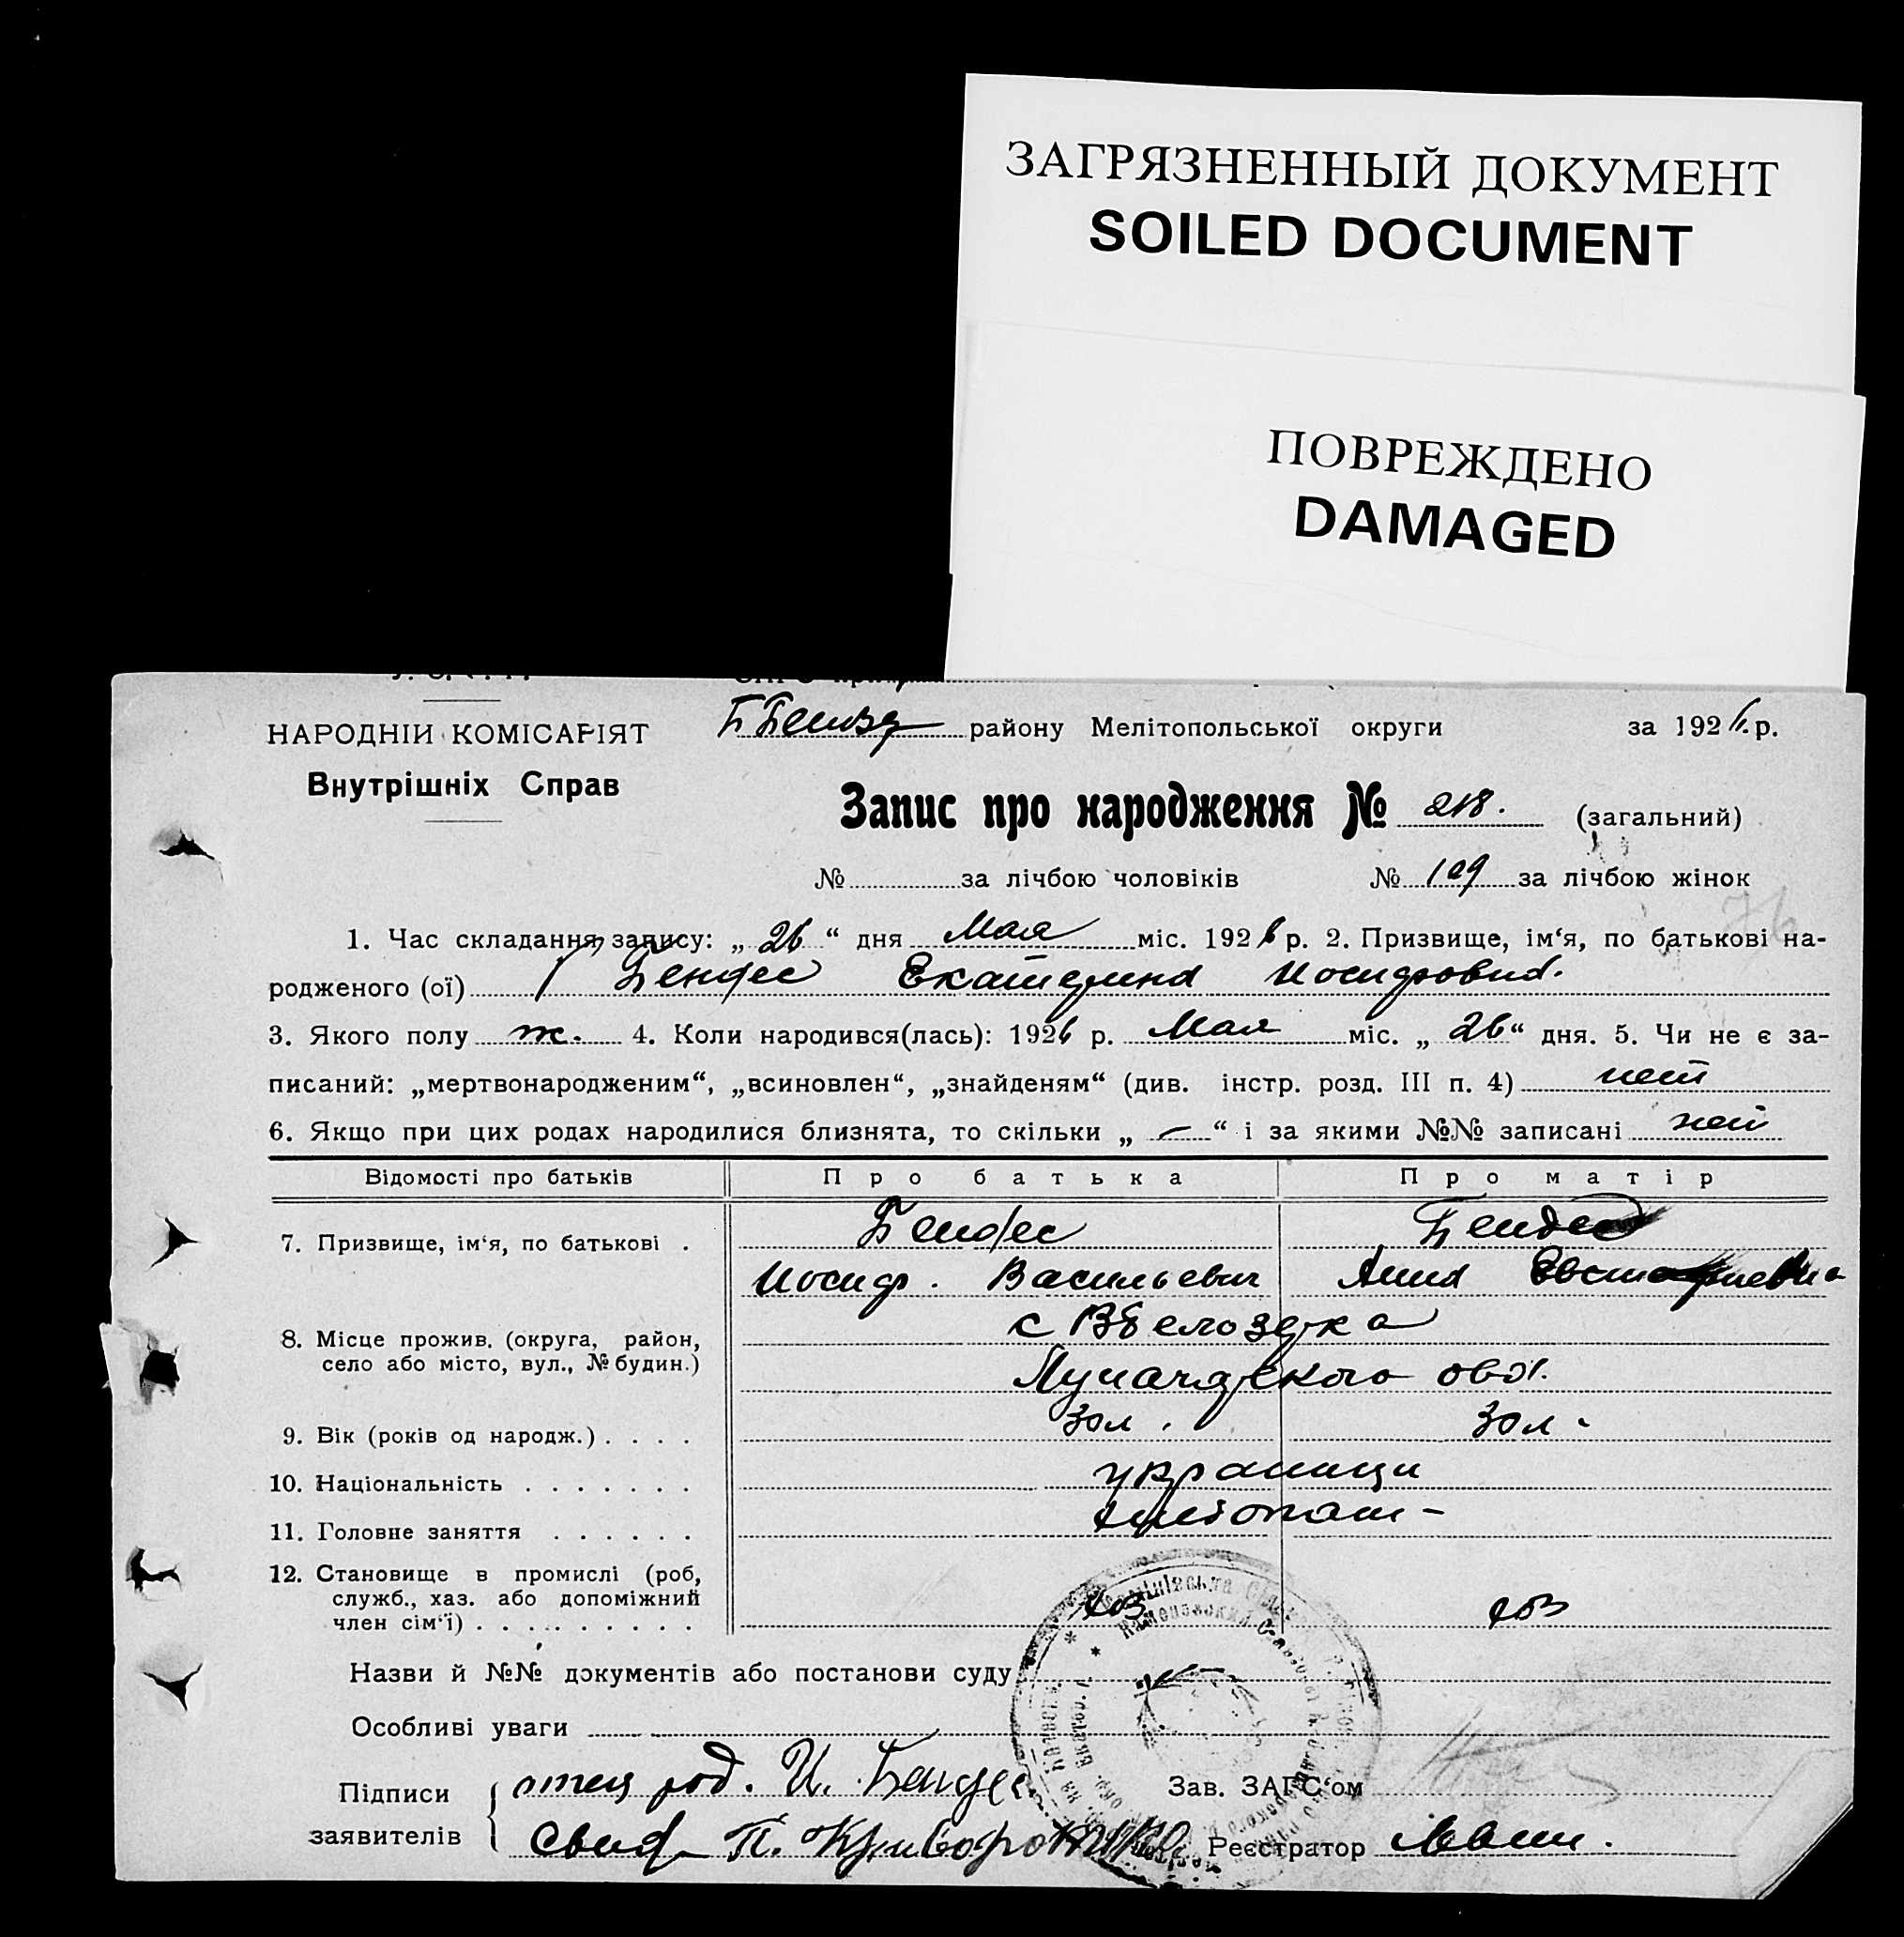 ЗАГРЯЗНЕННЫЙ ДОКУМЕНТ
SOILED DOCUMENT
ПОВРЕЖДЕНО
DAMAGED
НАРОДНІИ КОМІСАРІЯТ
Внутрішніх Справ
району Мелітопольської округи за 1926 р.
Запис про народження № 218. (загальний)
№ за лічбою чоловіків № 109 за лічбою жінок
76
1. Час складання запису: „ 26 “ дня Мая міс. 1926 р. 2. Призвище, ім‘я, по батькові на-
родженого (ої) Бендес Екатерина Иосифовна.
3. Якого полу ж. 4. Коли народився(лась): 1926 р. Мая міс. „ 26 “ дня. 5. Чи не є за-
писаний: „мертвонародженим“, „всиновлен“, „знайденям“ (див. інстр. розд. III п. 4) нет
6. Якщо при цих родах народилися близнята, то скільки „ — “ і за якими №№ записані нет
Відомості про батьків Про батька Про матір
7. Призвище, ім‘я, по батькові . Бендес Бендес
Иосиф. Васильевич Анна
8. Місце прожив. (округа, район, с В Белозерка
село або місто, вул., № будин.)
9. Вік (років од народж.) . . . . 30 л. 30 л.
10. Національність . . . . . . . украинци
11. Головне заняття . . . . . . хлебопаш –
12. Становище в промислі (роб,
служб., хаз. або допоміжний
член сім‘ї) . . . . . . . . . . хоз хоз
Назви й №№ документів або постанови суду
Особливі уваги
Підписи отец род. И. Бендес Зав. ЗАГС‘ом
заявителів Свид П. Реєстратор